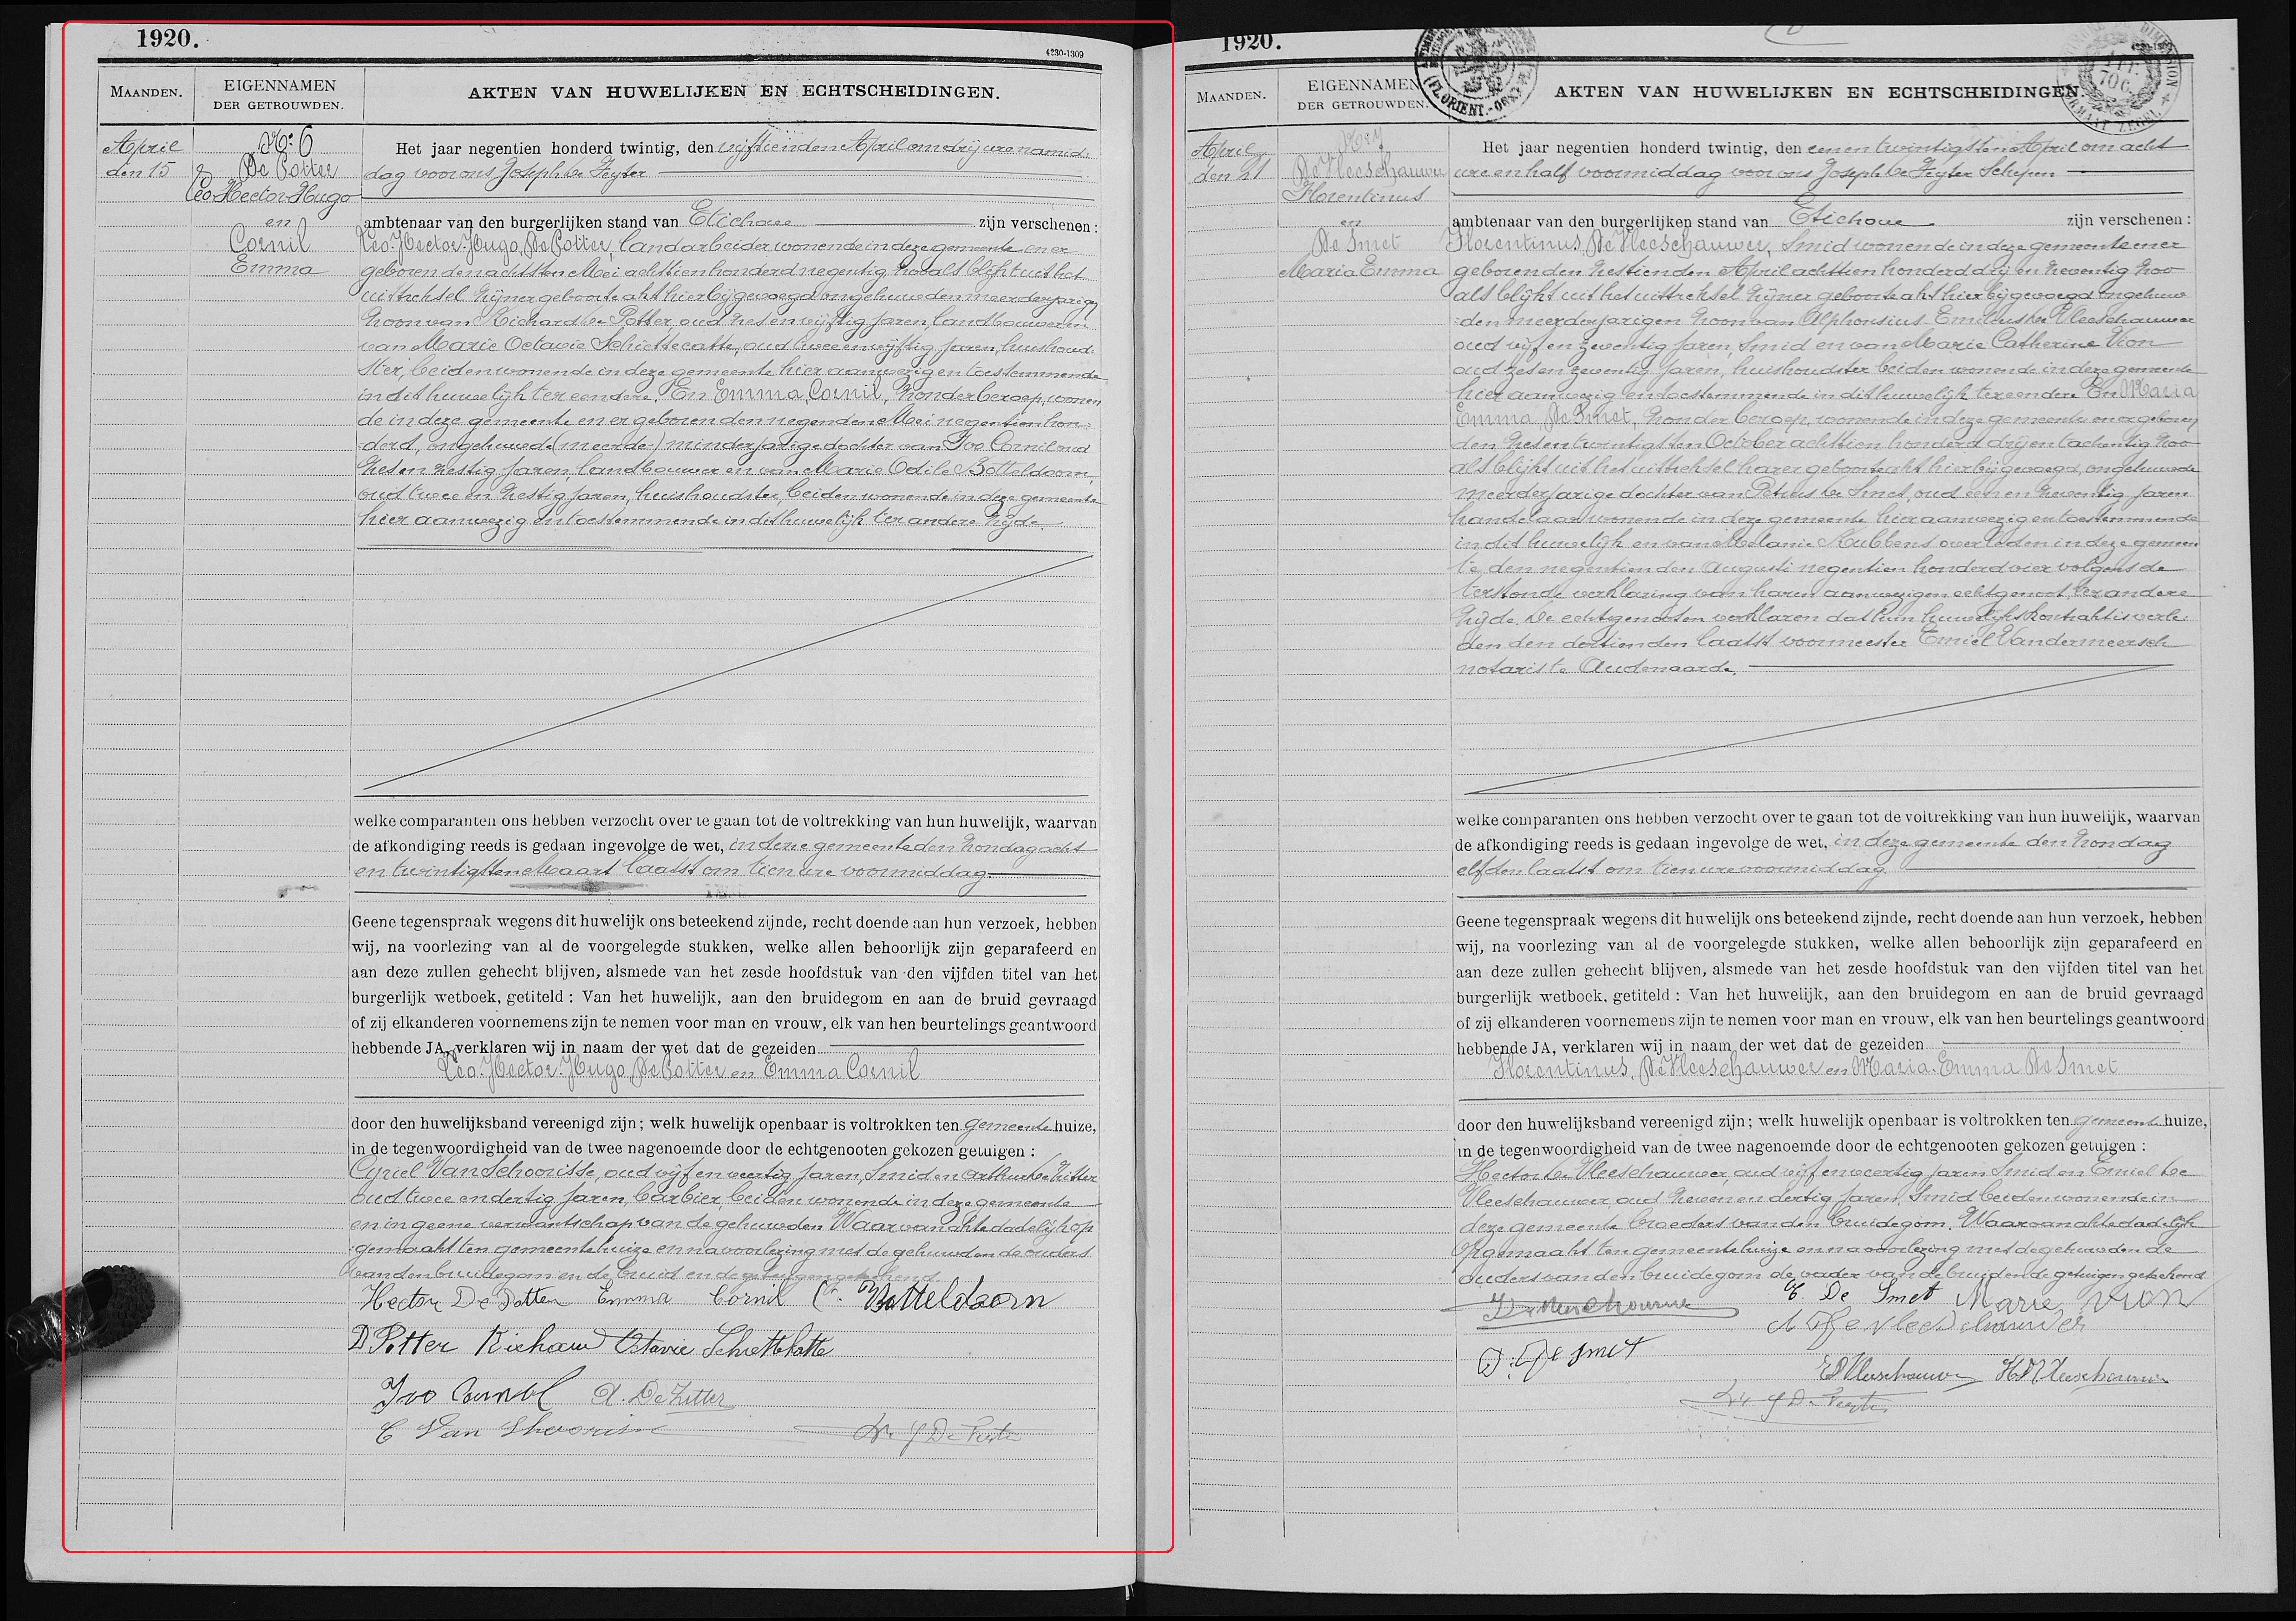 1920.
4230-1309
MAANDEN.
EIGENNAMEN
DER GETROUWDEN.
AKTEN VAN HUWELIJKEN EN ECHTSCHEIDINGEN.
April
den 15
N:º 6
De Potter
Leo-Hector-Hugo
en
Cornil
Emma
Het jaar negentien honderd twintig, den vijftienden April om drij ure namid:
dag voor ons Joseph De Feyter
ambtenaar van den burgerlijken stand van Etichove zijn verschenen :
Leo-Hector-Hugo, De Potter, landarbeider wonende in deze gemeente en er
geboren den achtsten Mei achttien honderd negentig zooals blijkt uit het
uittreksel zijner geboorteakt hier bijgevoegd ongehuwden meerderjarigen
zoon van Richard De Potter, oud zes en vijftig jaren, landbouwer en
van Marie Octavie Schiettecatte, oud twee en vijftig jaren, huishoud:
ster, beiden wonende in deze gemeente hier aanwezig en toestemmende
in dit huwelijk ter eendere. En Emma, Cornil, zonder beroep, wonen
de in deze gemeente en er geboren den negenden Mei negentien hon:
derd, ongehuwde (meerde-) minderjarige dochter van Ivo Cornil oud
zes en zestig jaren, landbouwer en van Marie Odile Botteldoorn,
oud twee en zestig jaren, huishoudster, beiden wonende in deze gemeente
hier aanwezig en toestemmende in dit huwelijk ter andere zijde.
welke comparanten ons hebben verzocht over te gaan tot de voltrekking van hun huwelijk, waarvan
de afkondiging reeds is gedaan ingevolge de wet, in deze gemeente den zondag acht
en twintigsten Maart laatst om tien ure voormiddag.
Geene tegenspraak wegens dit huwelijk ons beteekend zijnde, recht doende aan hun verzoek, hebben
wij, na voorlezing van al de voorgelegde stukken, welke allen behoorlijk zijn geparafeerd en
aan deze zullen gehecht blijven, alsmede van het zesde hoofdstuk van den vijfden titel van het
burgerlijk wetboek, getiteld : Van het huwelijk, aan den bruidegom en aan de bruid gevraagd
of zij elkanderen voornemens zijn te nemen voor man en vrouw, elk van hen beurtelings geantwoord
hebbende JA, verklaren wij in naam der wet dat de gezeiden
Leo-Hector-Hugo, De Potter en Emma Cornil
door den huwelijksband vereenigd zijn ; welk huwelijk openbaar is voltrokken ten gemeentehuize,
in de tegenwoordigheid van de twee nagenoemde door de echtgenooten gekozen getuigen :
Cyriel Van Schoorisse, oud vijf en veertig jaren, Smid en Arthur De Zitter
oud twee en dertig jaren, barbier, beiden wonende in deze gemeente
en in geene verwantschap van de gehuwden. Waarvan akte dadelijk op
:gemaakt ten gemeentehuize en na voorlezing met de gehuwden de ouders
van den bruidegom en de bruid en de getuigen geteekend
Hector De Potter Emma Cornil O. Botteldoorn
D Potter Richard Octavie Schiettekatte
Ivo Cornil A. De Zitter
C Van Schoorisse
1920.
MAANDEN.
EIGENNAMEN
DER GETROUWDEN.
AKTEN VAN HUWELIJKEN EN ECHTSCHEIDINGEN.
April
den 21
Nº 7
De Vleeschauwer
Florentinus
en
De Smet
Maria Emma
Het jaar negentien honderd twintig, den eenen twintigsten April om acht
ure en half voormiddag voor ons Joseph De Feyter Schepen
ambtenaar van den burgerlijken stand van Etichove zijn verschenen :
Florentinus, De Vleeschauwer, Smid wonende in deze gemeente en er
geboren den zestienden April achttien honderd drij en zeventig zoo
als blijkt uit het uittreksel zijner geboorteakt hier bijgevoegd ongehuw
:den meerderjarigen zoon van Alphonsius Emilius De Vleeschauwer
oud vijf en zeventig jaren, Smid en van Marie Catherine Vion
oud zes en zeventig jaren, huishoudster beiden wonende in deze gemeente
hier aanwezig en toestemmende in dit huwelijk ter eendere En Maria
Emma, De Smet, zonder beroep, wonende in deze gemeente en er geboren
den zes en twintigsten October achttien honderd drij en tachentig zoo
als blijkt uit het uittreksel harer geboorteakt hier bijgevoegd, ongehuwde
meerderjarige dochter van Petrus De Smet, oud een en zeventig jaren
handelaar wonende in deze gemeente hier aanwezig en toestemmende
in dit huwelijk en van Melanie Rubbens overleden in deze gemeen
te den negentienden Augusti negentien honderd vier volgens de
terstonde verklaring van haren aanwezigen echtgenoot, ter andere
zijde. De echtgenooten verklaren dat hun huwelijkskontrakt is verle:
den den dertienden laatst voor meester Emiel Vandermeersch
notaris te Audenaarde.
welke comparanten ons hebben verzocht over te gaan tot de voltrekking van hun huwelijk, waarvan
de afkondiging reeds is gedaan ingevolge de wet, in deze gemeente den zondag
elfden laatst om tien ure voormiddag
Geene tegenspraak wegens dit huwelijk ons beteekend zijnde, recht doende aan hun verzoek, hebben
wij, na voorlezing van al de voorgelegde stukken, welke allen behoorlijk zijn geparafeerd en
aan deze zullen gehecht blijven, alsmede van het zesde hoofdstuk van den vijfden titel van het
burgerlijk wetboek, getiteld : Van het huwelijk, aan den bruidegom en aan de bruid gevraagd
of zij elkanderen voornemens zijn te nemen voor man en vrouw, elk van hen beurtelings geantwoord
hebbende JA, verklaren wij in naam der wet dat de gezeiden
Florentinus, De Vleeschauwer en Maria-Emma De Smet
door den huwelijksband vereenigd zijn ; welk huwelijk openbaar is voltrokken ten gemeentehuize,
in de tegenwoordigheid van de twee nagenoemde door de echtgenooten gekozen getuigen :
Hector De Vleeschauwer, oud vijf en veertig jaren Smid en Emiel De
Vleeschauwer, oud zeven en dertig jaren, Smid beiden wonende in
deze gemeente broeders van den bruidegom. Waarvan akte dadelijk
opgemaakt ten gemeentehuize en na voorlezing met de gehuwden de
ouders van den bruidegom de vader van de bruid en de getuigen geteekend
E. De Smet Marie Vion
De Vleeschauwer
De Smet
E D Vleeschauwer H D Vleeschauwer